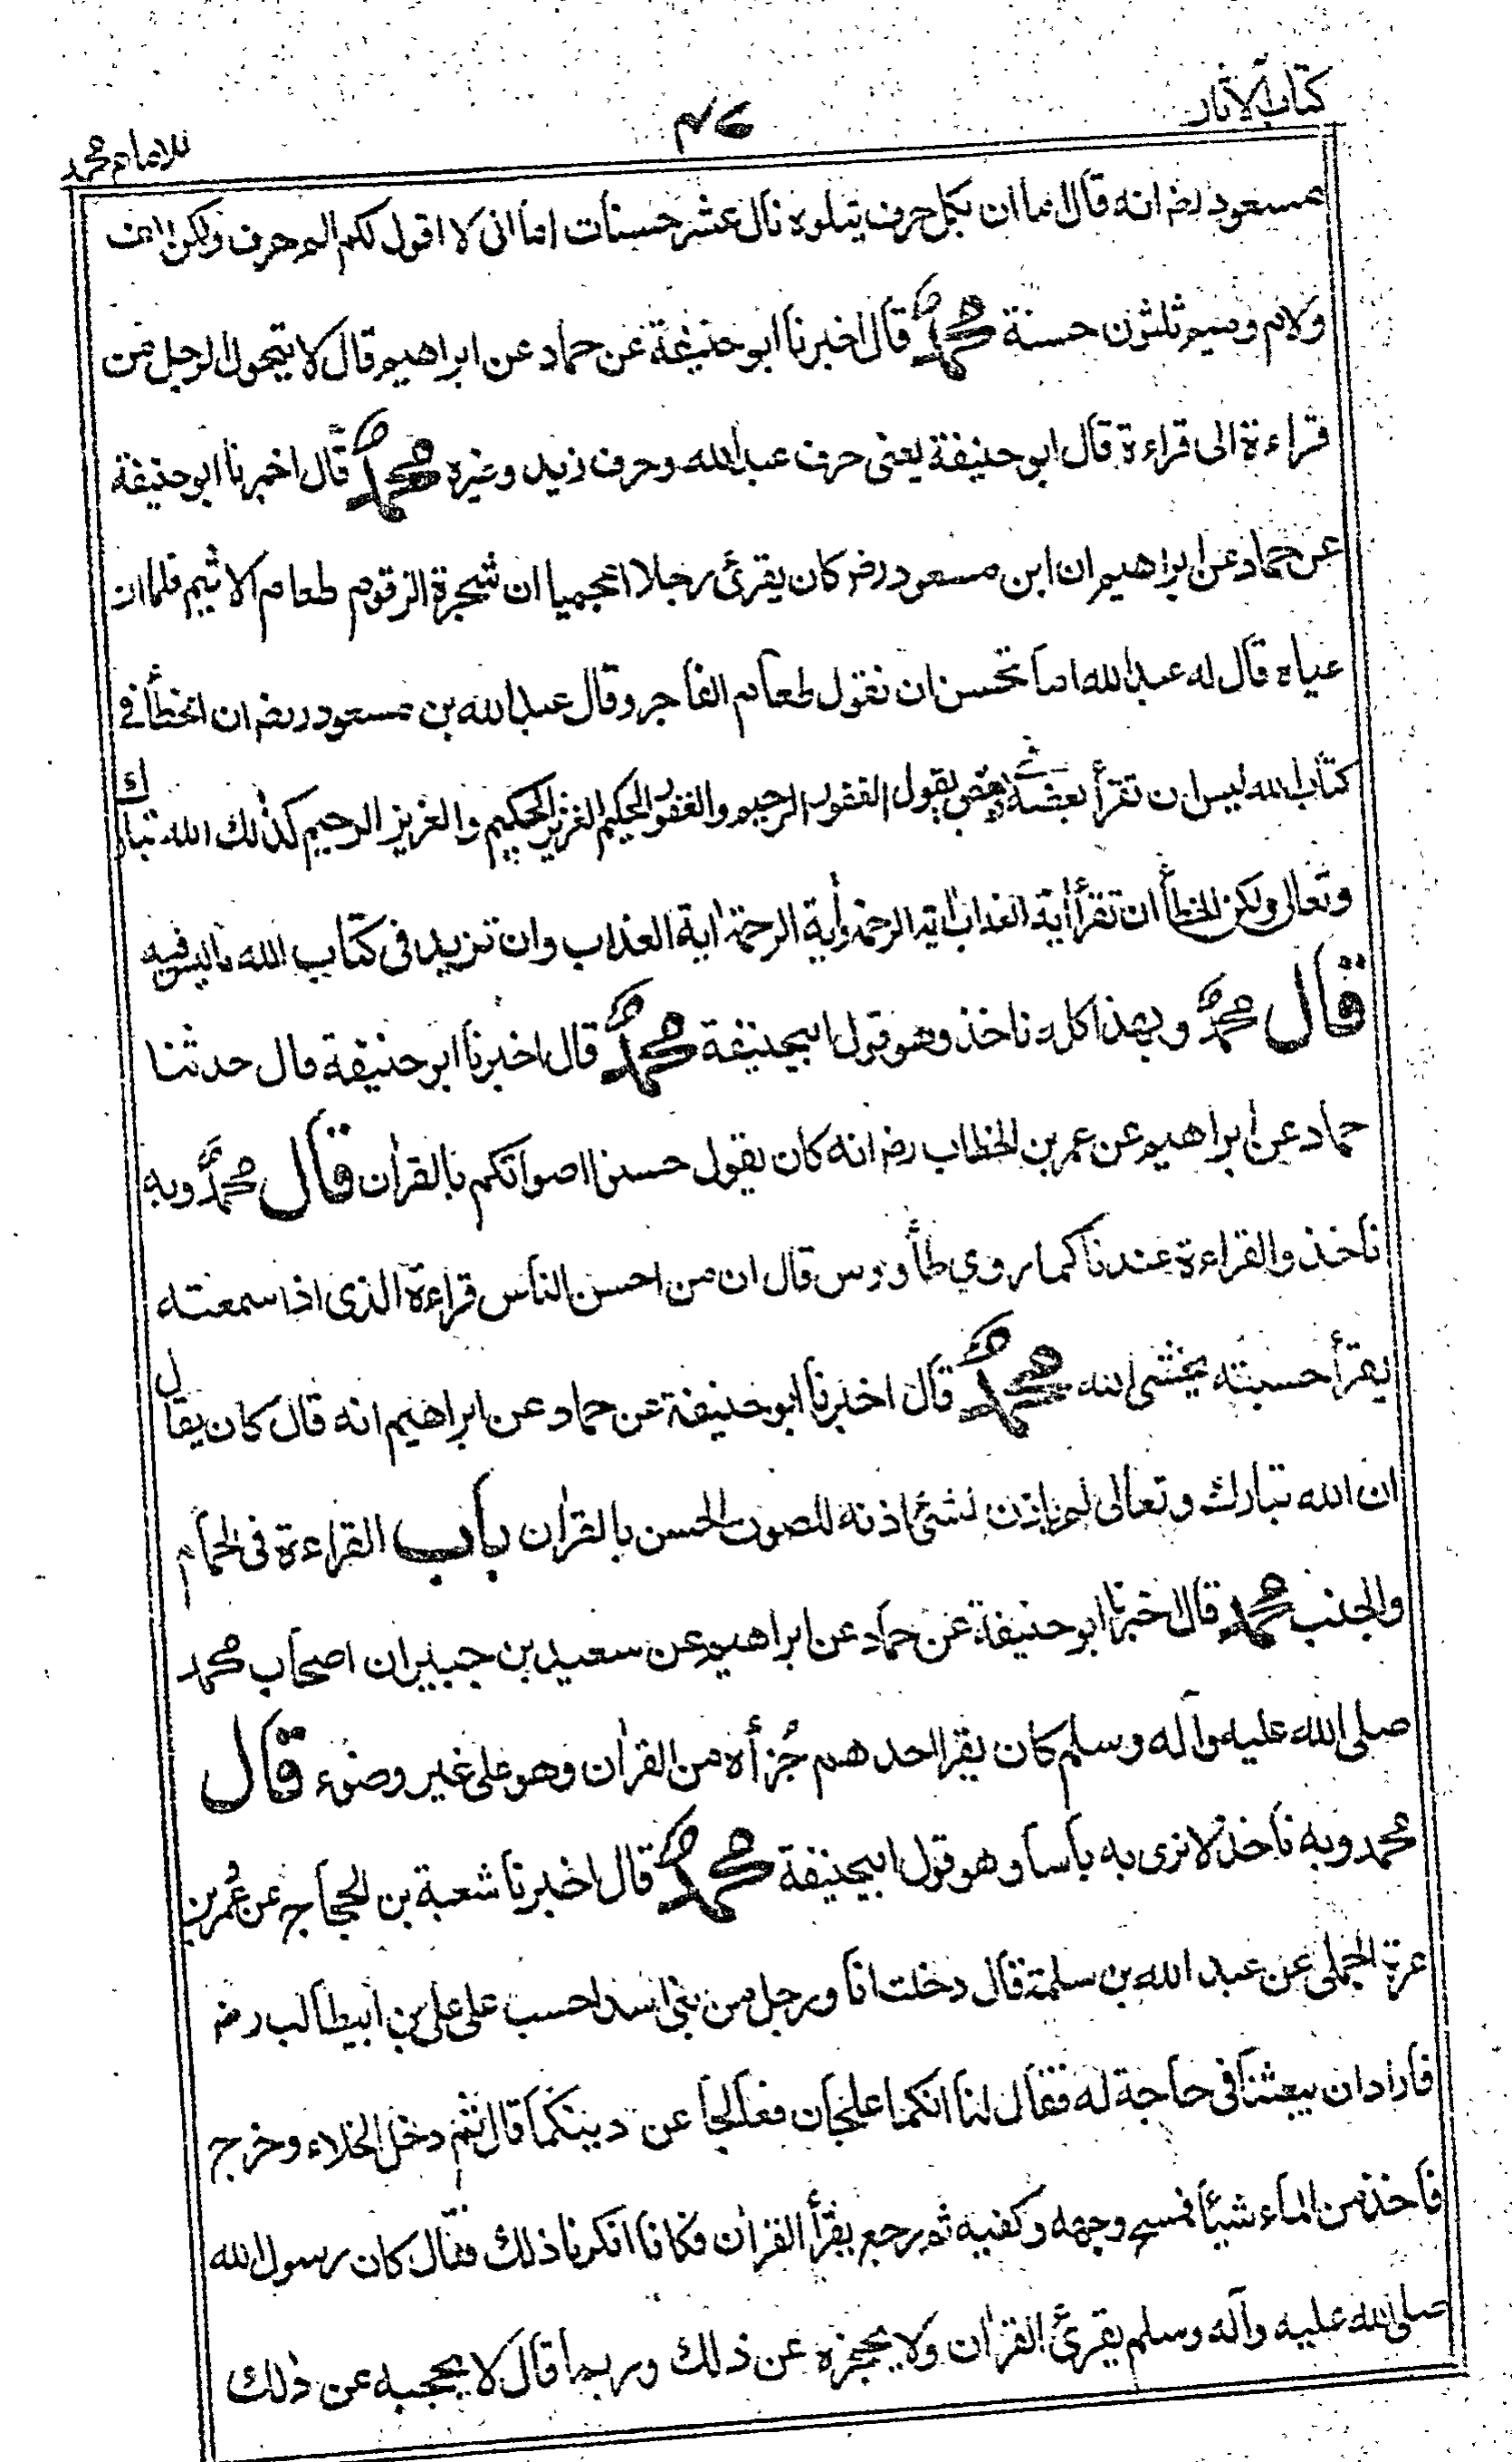 كتاب الآثار
٤٦
للامام محمد
مسعود رض انه قال اما ان بكل حرف يتلوه تال عشر حسنات اما انى لا اقول لكم الم حرف ولكن الف
ولام وميم ثلثون حسنة محمد قال اخبرنا ابو حنيفة عن حماد عن ابراهيم قال لا يتحول الرجل من
قراءة الى قراءة قال ابو حنيفة يعنى حرف عبد الله وحرف زيد وغيره محمد قال اخبرنا ابو حنيفة
عن حماد عن ابراهيم ان ابن مسعود رض كان يقرئ رجلا اعجميا ان شجرة الزقوم طعام الاثيم فلما ان
عياه قال له عبد الله اما تحسن ان تقول طعام الفاجر وقال عبد الله بن مسعود رض ان الخطأ فى
كتاب الله ليس ان تقرأ بعضه فى بعض يقول الغفور الرحيم والغفور الحكيم العزيز الحكيم والعزيز الرحيم كذلك الله تبارك
وتعالى ولكن الخطأ ان تقرأ اية العذاب اية الرحمة واية الرحمة اية العذاب وان تزيد فى كتاب الله ما ليس فيه
قال محمد وبهذا كله ناخذ وهو قول ابيحنيفة محمد قال اخبرنا ابو حنيفة قال حدثنا
حماد عن ابراهيم عن عمر بن الخطاب رض انه كان يقول حسنوا اصواتكم بالقرأن قال محمد وبه
ناخذ والقراءة عندنا كما روي طاووس قال ان من احسن الناس قراءة الذى اذا سمعته
يقرأ حسبته يخشى الله محمد قال اخبرنا ابو حنيفة عن حماد عن ابراهيم انه قال كان يقال
ان الله تبارك وتعالى لم ياذن لشئ اذنه للصوت الحسن بالقرأن باب القراءة فى الحمام
والجنب محمد قال اخبرنا ابو حنيفة عن حماد عن ابراهيم عن سعيد بن جبير ان اصحاب محمد
صلى الله عليه وآله وسلم كان يقرا احدهم جُزأه من القرأن وهو على غير وضوء قال
محمد وبه ناخذ لا نرى به بأسا وهو قول ابيحنيفة محمد قال اخبرنا شعبة بن الحجاج عن عُمر بن
عرة الجملى عن عبد الله بن سلمة قال دخلت انا ورجل من بنى اسد احسب على على بن ابيطالب رض
فاراد ان يبعثنا فى حاجة له فقال لنا انكما علجان فعالجا عن دينكما قال ثم دخل الخلاء وخرج
فاخذ من الماء شيئا فمسح وجهه وكفيه ثم رجع يقرأ القرأن فكانا انكرنا ذلك فقال كان رسول الله
صلى الله عليه وآله وسلم يقرئ القرأن ولا يحجزه عن ذلك وربما قال لا يحجبه عن ذلك